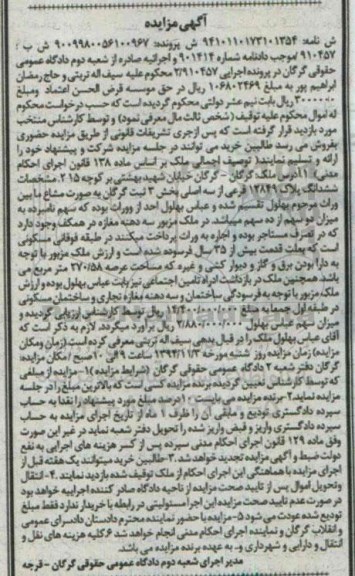 آگهی مزایده
ش نامه: ۹۴۱۰۱۱۰۱۷۳۱۰۱۳۵۴ ش پرونده: ۹۰۰۹۹۸۰۰۵۶۱۰۰۹۶۷ ش ب :
۹۱۰۴۵۷ /موجب دادنامه شماره ۹۰۱۴۱۴ و اجرائیه صادره از شعبه دوم دادگاه عمومی
حقوقی گرگان در پرونده اجرایی ۲/۹۱۰۴۵۷ محکوم علیه سیف اله تربتی و حاج رمضان
ابراهیم پور به مبلغ ۱۰۶۸۰۲۴۶۹ ریال در حق موسسه قرض الحسن اعتماد ومبلغ
۳۰۰۰۰۰۰ ریال بابت نیم عشر دولتی محکوم گردیده است که حسب درخواست محکوم
له اموال محکوم علیه توقیف ( شخص ثالث مال معرفی نمود) و توسط کارشناس منتخب
مورد بازدید قرار گرفته است که پس ازجری تشریفات قانونی از طریق مزایده حضوری
بفروش می رسد طالبین خرید می توانند در جلسه مزایده شرکت و پیشنهاد خود را
ارائه و تسلیم نمایند( توصیف اجمالی ملک بر اساس ماده ۱۳۸ قانون اجرای احکام
مدنی ۱) آدرس ملک: گرگان - گرگان خیابان شهید بهشتی بر کوچه ۲،۱۵. مشخصات
ششدانگ پلاک ۱۲۸۴۹ فرعی از سه اصلی بخش ۳ ثبت گرگان به صورت مشاع ما بین
وراث مرحوم بهلول تقسیم شده و عباس بهلول احد از ووراث بوده که سهم نامبرده به
میزان دو سهم از ده سهم میباشد. در ملک مزبور سه دهنه مغازه در همکف وجود دارد
که در تصرف مستاجر بوده و اجاره به وراث پرداخت میکنند در طبقه فوقانی مسکونی
است که بعلت قدمت بیش از ۳۵ سال فرسوده شده است و ارزش ملک مزبور با توجه
به دارا بودن برق و گاز و دیوار کشی و غیره که مساحت عرصه ۲۷۰/۵۸ متر مربع می
باشد. همچنین ملک در بازداشت اداره تامین اجتماعی نیز بابت عباس بهلول بوده و ارزش
ملک مزبور با توجه به فرسودگی ساختمان و سه دهنه مغازه تجاری و ساختمان مسکونی
در طبقه اول جمعا به مبلغ ریال توسط کارشناس ارزیابی گردیده و
میزان سهم عباس بهلول ۲/۸۸۰/۰۰۰/۰۰۰ ریال برآورد میگردد. لازم به ذکر است که
آقای عباس بهلول ملک را در قبال بدهی سیف اله تربتی معرفی کرده است (زمان ومکان
مزایده) زمان مزایده روز شنبه مورخه ۱۳۹۴/۱۱/۳ ساعت ۹ الی ۱۰ صبح / مکان مزایده:
گرگان دفتر شعبه ۲ دادگاه عمومی حقوقی گرگان (شرایط مزایده )۱- مزایده از مبلغی
که توسط کارشناس تعیین گردیده برنده مزایده کسی است که بالاترین مبلغ را در جلسه
مزایده نماید.۲- برنده مزایده می بایست ۱۰درصد مبلغ مورد پیشنهاد را نقدا به حساب
سپرده دادگستری تودیع و مابقی آن را ظرف ۱ ماه از تاریخ اجرای مزایده به حساب
سپرده دادگستری واریز و قبض واریز شده را تحویل دفتر شعبه نماید در غیر این صورت
وفق ماده ۱۲۹ قانون اجرای احکام مدنی سپرده پس از کسر هزینه های اجرایی به نفع
دولت ضبط و آگهی مزایده تجدید خواهد شد. ۳- طالبین خرید میتوانند یک هفته قبل از
اجرای مزایده با هماهنگی این اجرای احکام از ملک توقیف شده بازدید نمایند .۴- انتقال
وتحویل اموال پس از تایید صحت مزایده از ناحیه دادگاه صادر کننده اجراییه خواهد بود
در صورت عدم تایید صحت مزایده این اجرا مسئولیتی در رابطه با خریدار ندارد فقط مبلغ
تودیع شده عودت می شود.۵- مزایده با حضور نماینده محترم دادستان دادسرای عمومی
و انقلاب گرگان و نماینده اجرای احکام مدنی انجام خواهد شد ۶.کلیه هزینه های نقل و
انتقال و دارایی و شهرداری و.. به عهده برنده مزایده می باشد.
مدیر اجرای شعبه دوم دادگاه عمومی حقوقی گرگان - قرجه